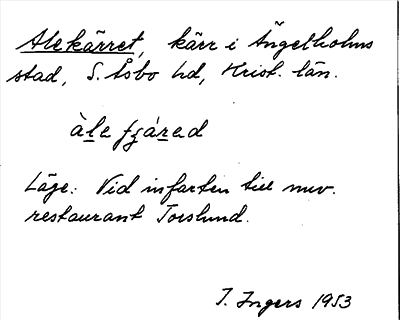 Alekärret, kärr i Ängelholms
stad, S. Åsbo hd, Krist. län.
àle fʒáred
Läge: Vid infarten till nuv.
restaurant Torslund.
I. Ingers 1953